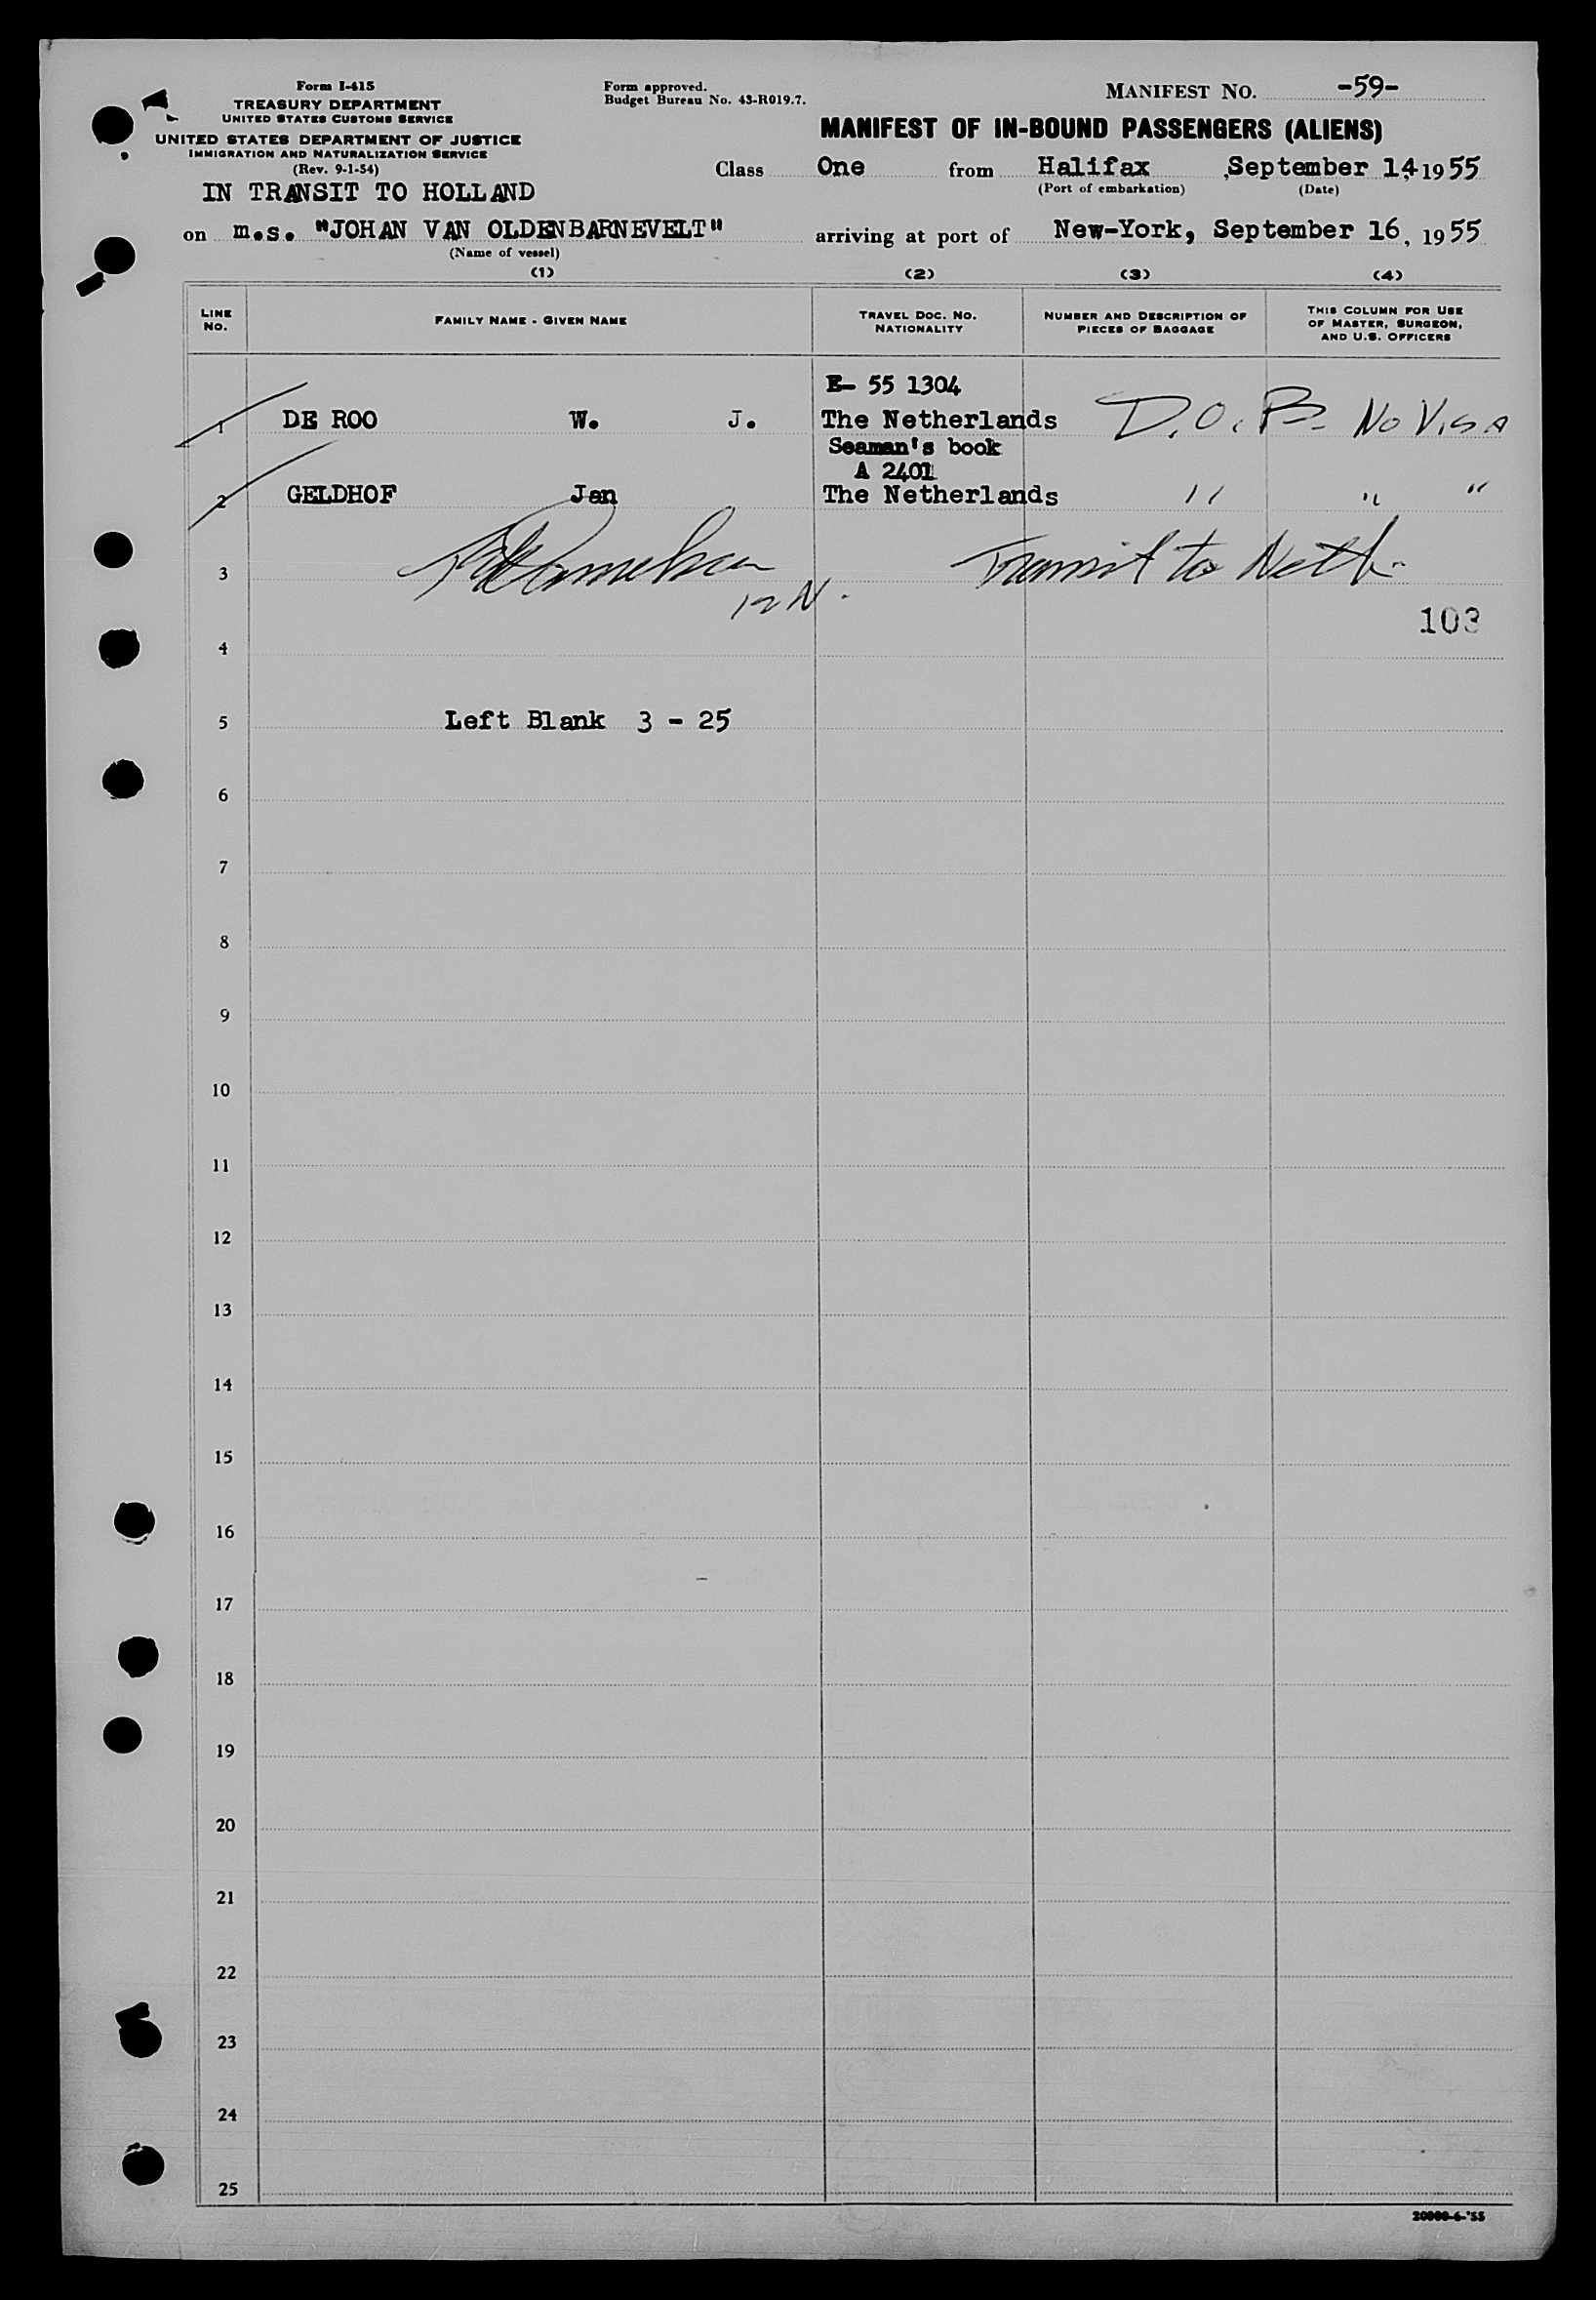 Form I-415
TREASURY DEPARTMENT
UNITED STATES CUSTOMS SERVICE
UNITED STATES DEPARTMENT OF JUSTICE
IMMIGRATION AND NATURALIZATION SERVICE
(Rev. 9-1-54)
IN TRANSIT TO HOLLAND
Form approved.
Budget Bureau No. 43-R019.7.
MANIFEST NO. -59-
MANIFEST OF IN-BOUND PASSENGERS (ALIENS)
Class One from Halifax ,September 14, 1955
(Port of embarkation) (Date)
on m.s. "JOHAN VAN OLDENBARNEVELT" arriving at port of New-York, September 16, 1955
(Name of vessel)
(1) (2) (3) (4)
LINE NO. FAMILY NAME - GIVEN NAME TRAVEL DOC. NO. NATIONALITY NUMBER AND DESCRIPTION OF PIECES OF BAGGAGE THIS COLUMN FOR USE OF MASTER, SURGEON, AND U.S. OFFICERS
E- 55 1304
1 DE ROO W. J. The Netherlands D.O.B. No Visa
Seaman's book
A 2401
2 GELDHOF Jan The Netherlands " " "
3 Transit to Neth.
103
4
5 Left Blank 3 - 25
6
7
8
9
10
11
12
13
14
15
16
17
18
19
20
21
22
23
24
25
20000-6-'55